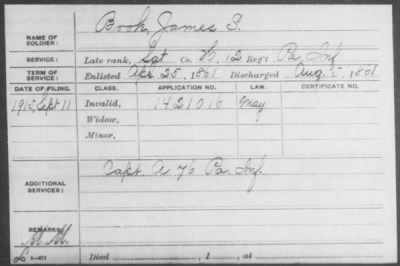 NAME OF SOLDIER: Book, James S.
SERVICE: Late rank, Sgt Co. H, 12 Reg't Pa Inf
TERM OF SERVICE: Enlisted Apr 25, 1861 Discharged Aug. 1861
DATE OF FILING. CLASS. APPLICATION NO. LAW. CERTIFICATE NO.
1915, Sept 11 Invalid, 1421016 May
Widow,
Minor,
ADDITIONAL SERVICES: Capt. A 76 Pa. Inf.
REMARKS:
M. M.
Died , 1 , at